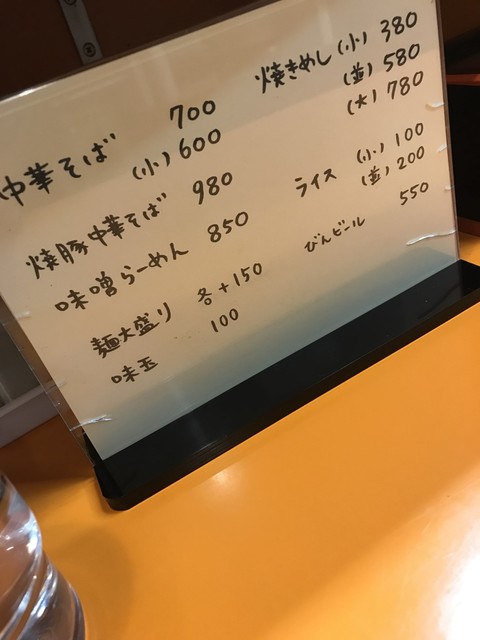 中華そば 700
(小) 600
焼豚中華そば 980
味噌らーめん 850
麺大盛り 各+150
味玉 100
焼きめし (小) 380
(並) 580
(大) 780
ライス (小) 100
(並) 200
びんビール 550